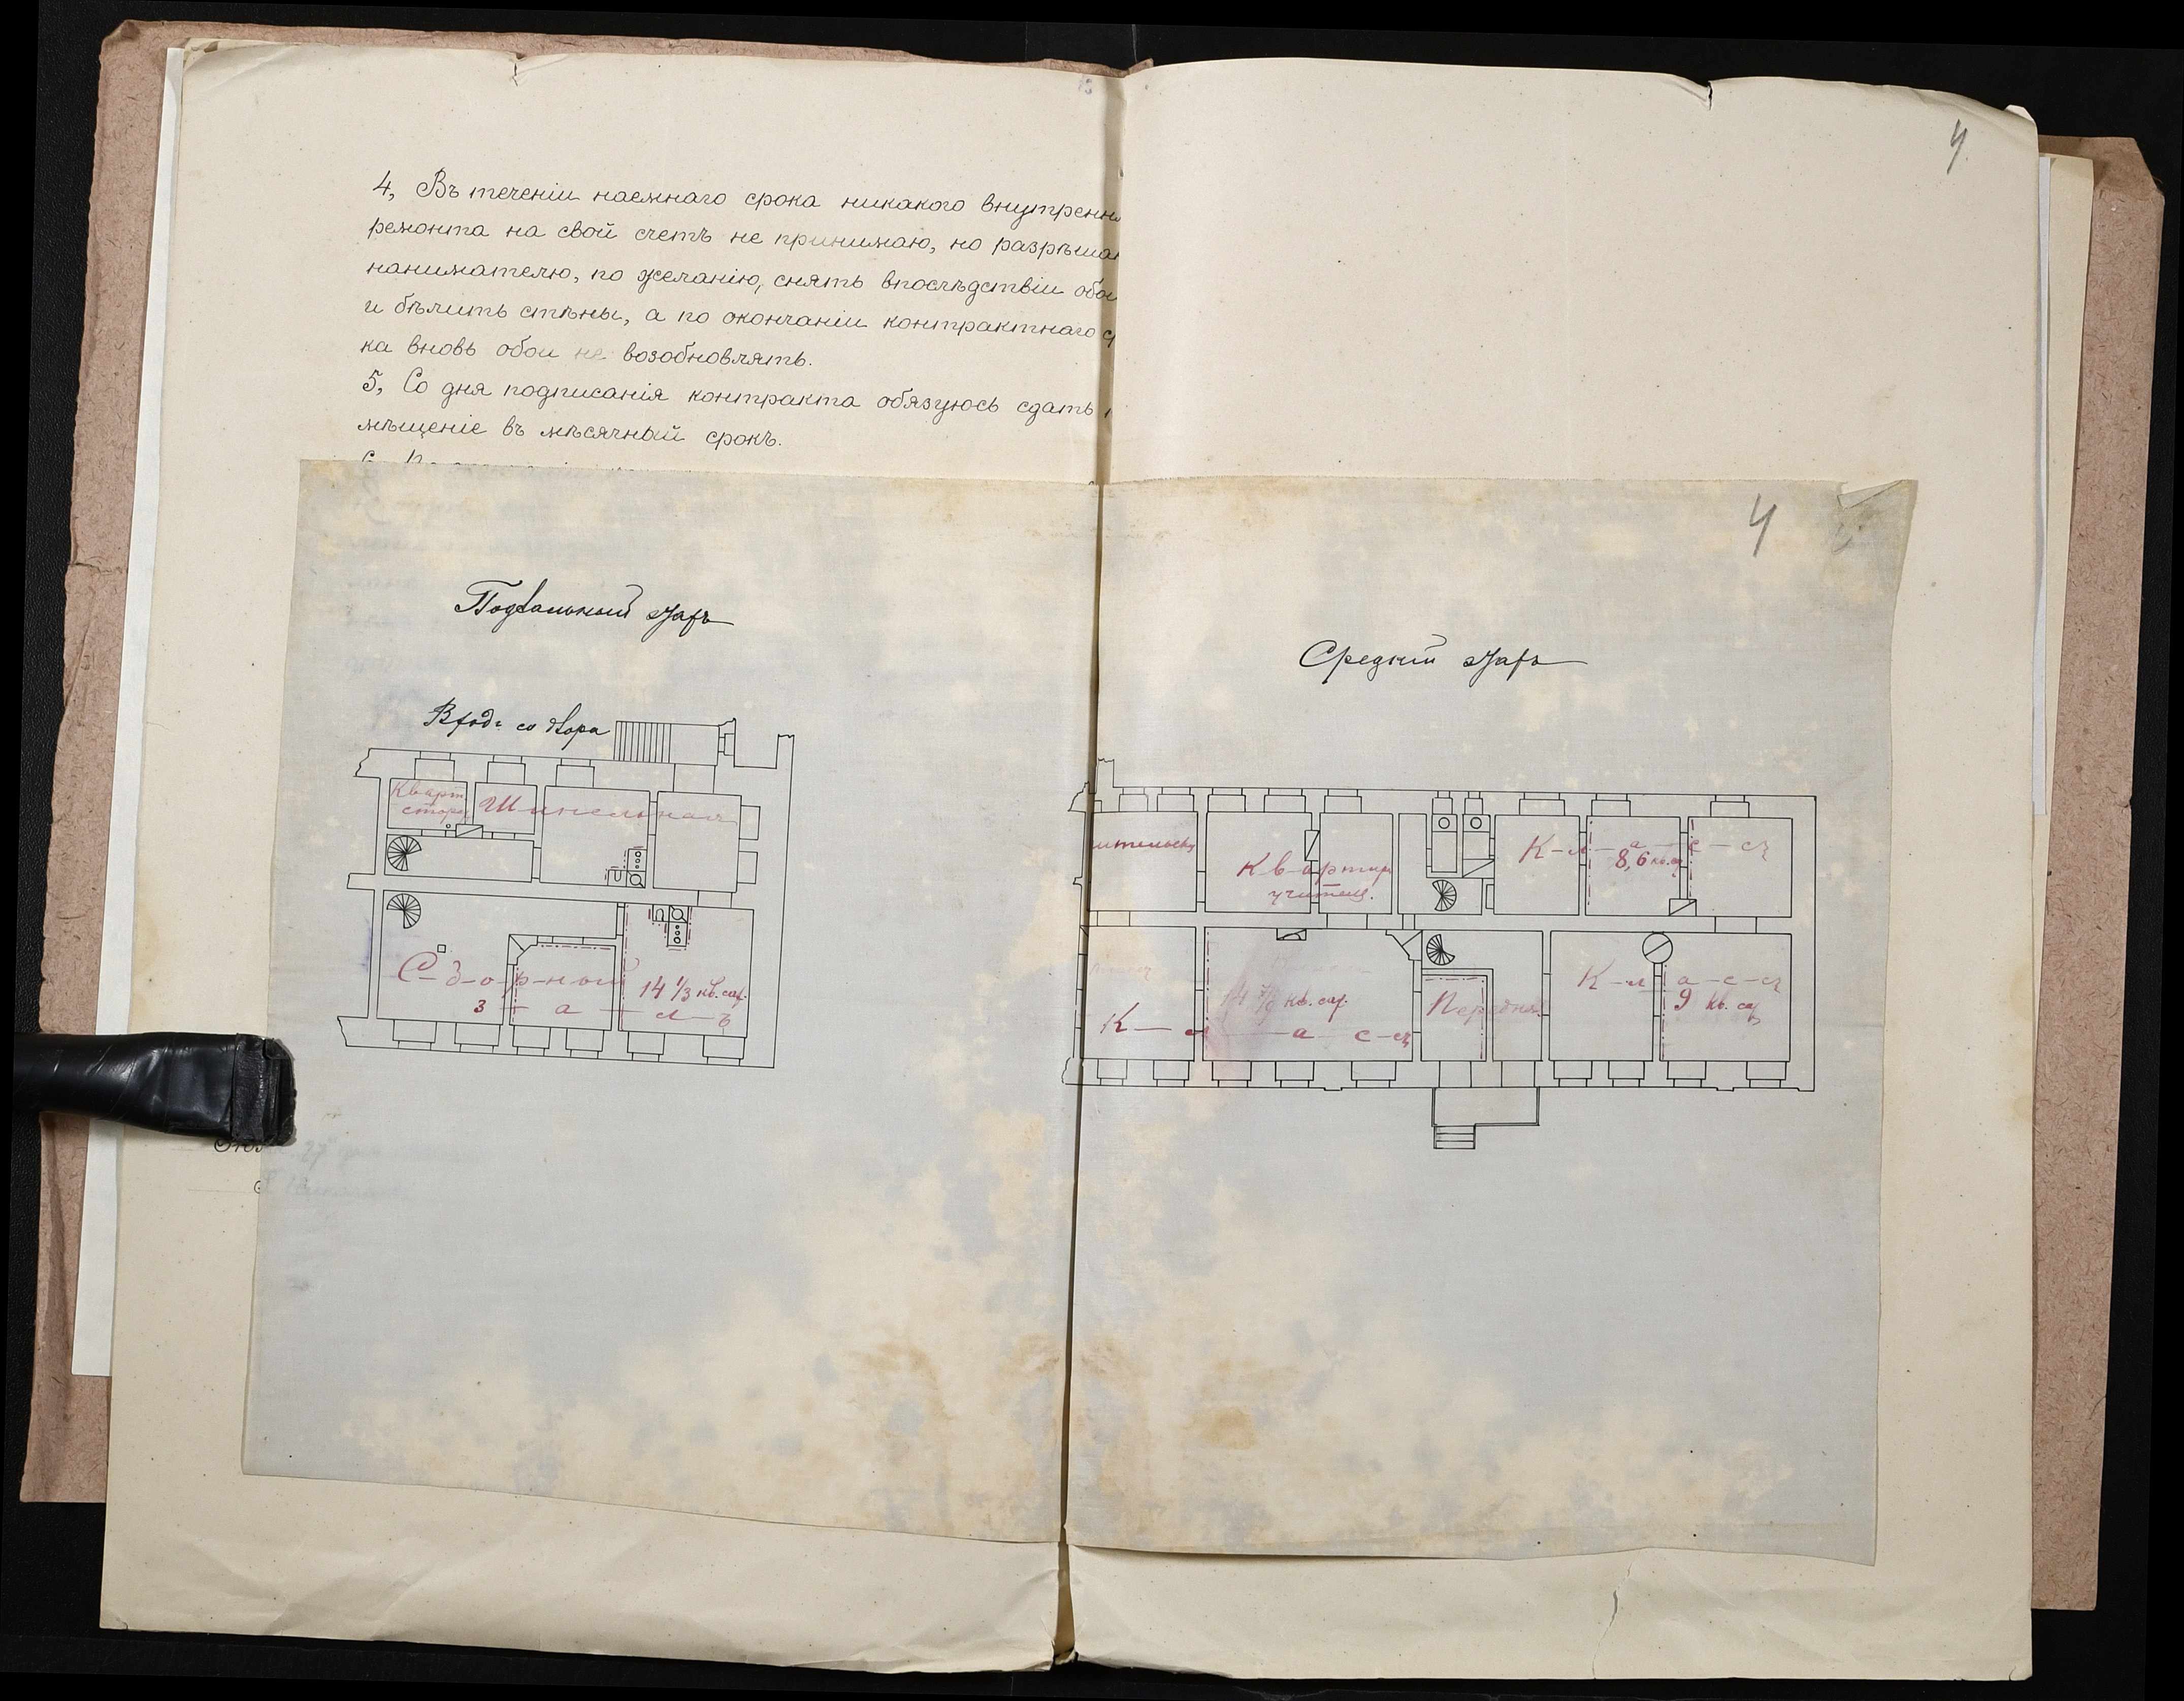 4.
4, Въ теченіи наемнаго срока никакого внутренн
ремонта на свой счетъ не принимаю, но разрѣша
нанимателю, по желанію, снять впослѣдствіи обо
и бѣлить стѣны, а по окончаніи контрактнаго с
ка вновь обои не возобновлять.
5, Со дня подписанія контракта обязуюсь сдать п
мѣщеніе въ мѣсячный срокъ.
4
Подвальный этажъ
Входъ со двора
Кварт.
сторож
Шинельная
С-б-о-р-ный
з-а-л-ъ
14 1/3 кв. саж.
Средній этажъ
ительск
Квартир
учител.
К-л-а-с-съ
8,6 кв. с.
К-л-а-с-съ
кв. саж.
Передняя
К-л-а-с-съ
9 кв. саж